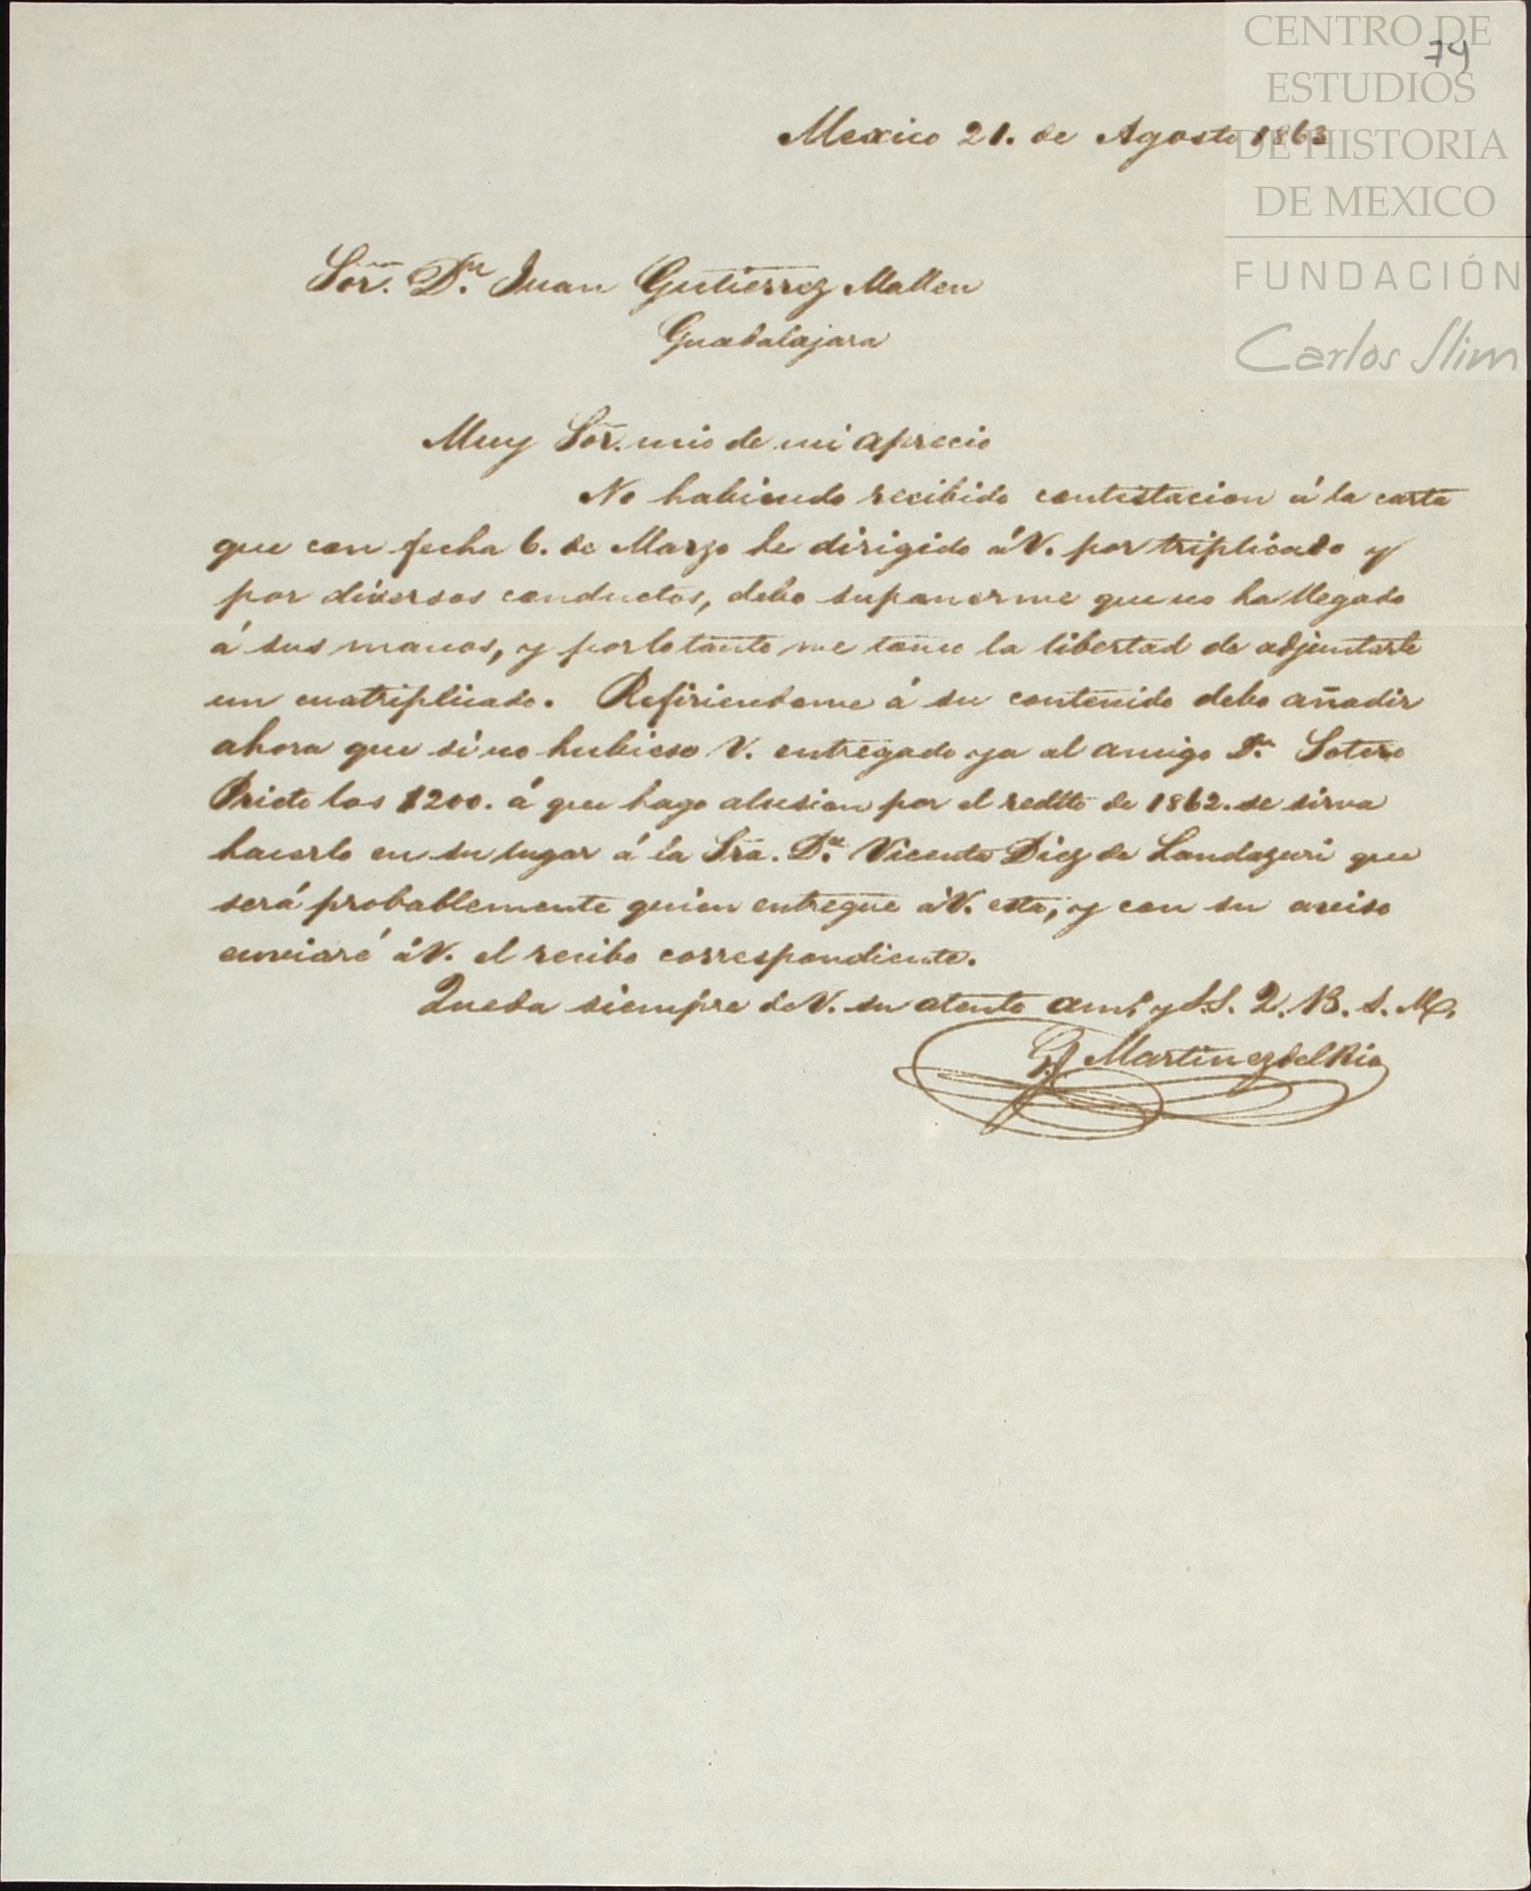 CENTRO DE
ESTUDIOS
DE HISTORIA
DE MEXICO
FUNDACIÓN
Carlos Slim
74
Mexico 21. de Agosto 1863
Sor. Dn. Juan Gutierrez Mallen
Guadalajara
Muy Sor. mio de mi aprecio
No habiendo recibido contestacion á la carta
que con fecha 6. de Marzo he dirigido á V. por triplicado y
por diversos conductos, debo suponerme que no ha llegado
á sus manos, y por lo tanto me tomo la libertad de adjuntarle
un cuatriplicado. Refiriendome á su contenido debo añadir
ahora que si no hubiese V. entregado ya al amigo Dn. Sotero
Prieto los $200. á que hago alusion por el redito de 1862. se sirva
hacerlo en su lugar á la Sra. Da. Vicenta Diez de Landazuri que
será probablemente quien entregue á V. esta, y con su aviso
enviaré á V. el recibo correspondiente.
Queda siempre de V. su atento amo. y S.S. Q. B. S. M.
Martinez del Rio